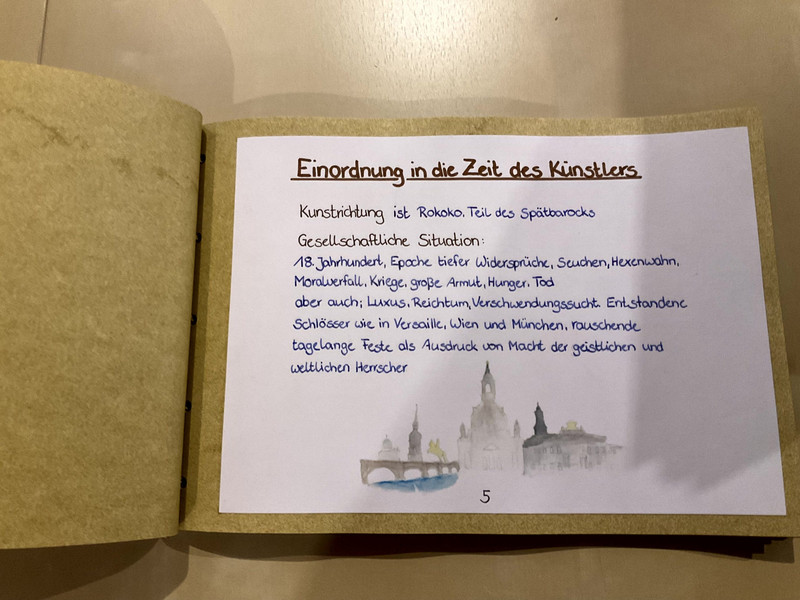 Einordnung in die Zeit des Künstlers
Kunstrichtung ist Rokoko. Teil des Spätbarocks
Gesellschaftliche Situation:
18. Jahrhundert, Epoche tiefer Widersprüche, Seuchen, Hexenwahn,
Moralverfall, Kriege, große Armut, Hunger, Tod
aber auch; Luxus, Reichtum, Verschwendungssucht. Entstandene
Schlösser wie in Versaille, Wien und München, rauschende
tagelange Feste als Ausdruck von Macht der geistlichen und
weltlichen Herrscher
5